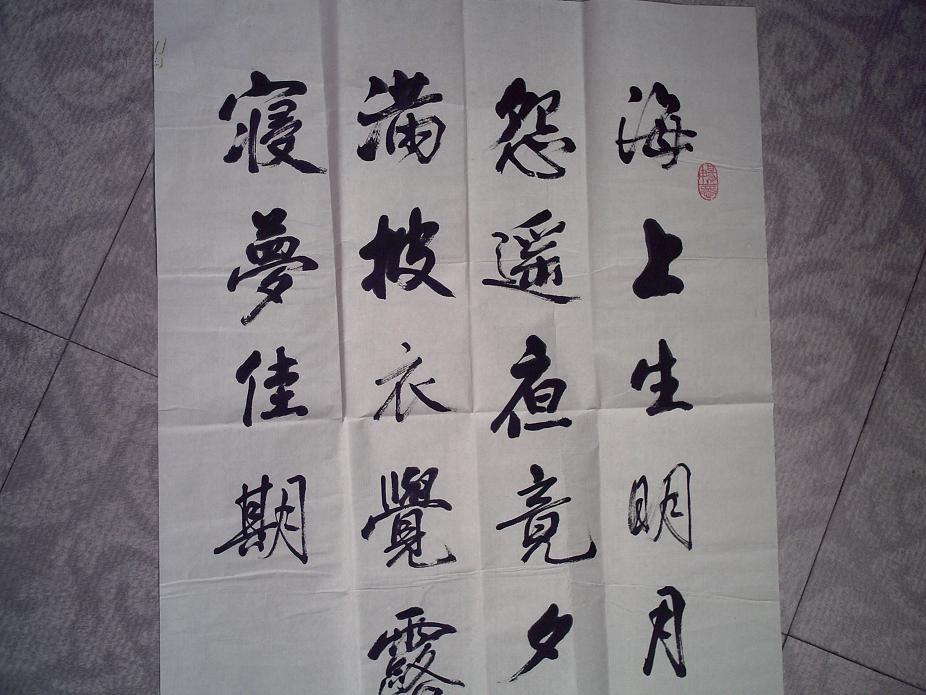 海上生明月
怨遥夜竟夕
满披衣覺露
寝夢佳期